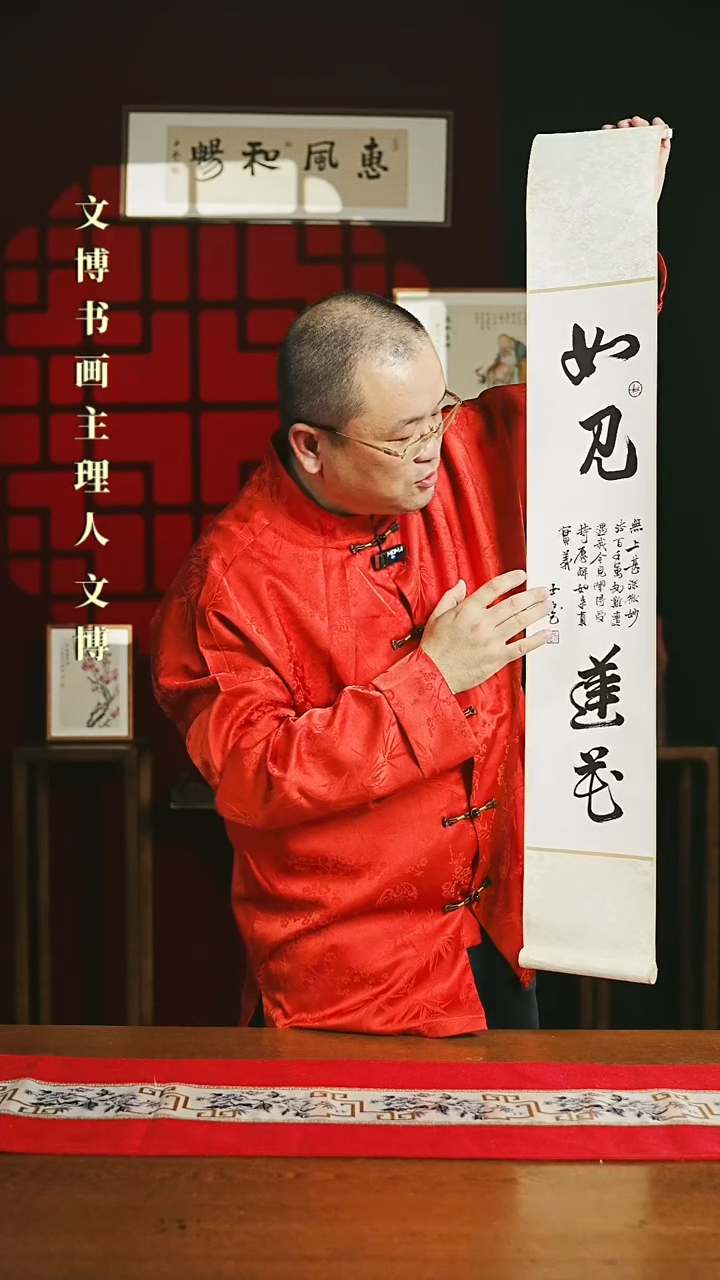 惠風和暢
文博书画主理人文博
如見蓮花
無上甚深微妙
法百千萬劫難遭
遇我今見聞得受
持願解如來真
實義